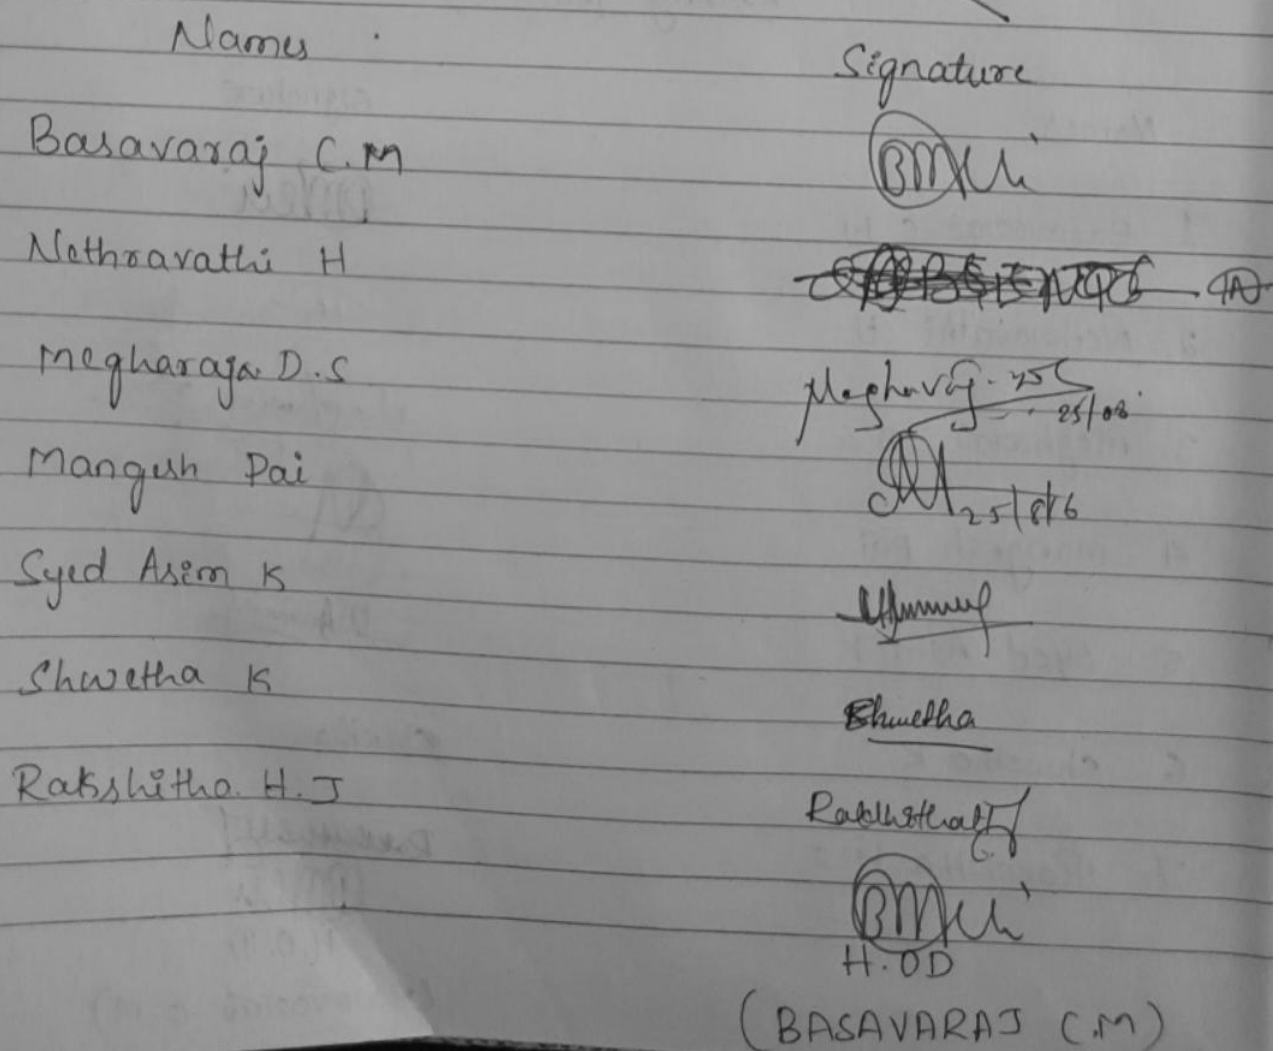 Names Signature
Basavaraj C.M
Nethravathi H
Megharaja D.S Megharaj
25/08
Mangesh Pai
25/8/16
Syed Asim K
Shwetha K Shwetha
Rakshitha. H.J Rakshitha
H.OD
(BASAVARAJ C.M)